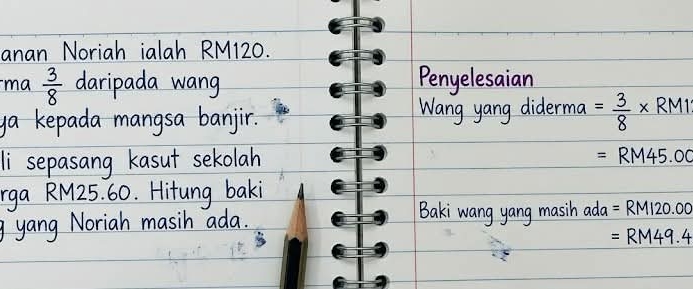 anan Noriah ialah RM120.
rma 3/8 daripada wang
ya kepada mangsa banjir.
li sepasang kasut sekolah
rga RM25.60. Hitung baki
g yang Noriah masih ada.
Penyelesaian
Wang yang diderma = 3/8 × RM12
= RM45.00
Baki wang yang masih ada = RM120.00
= RM49.4